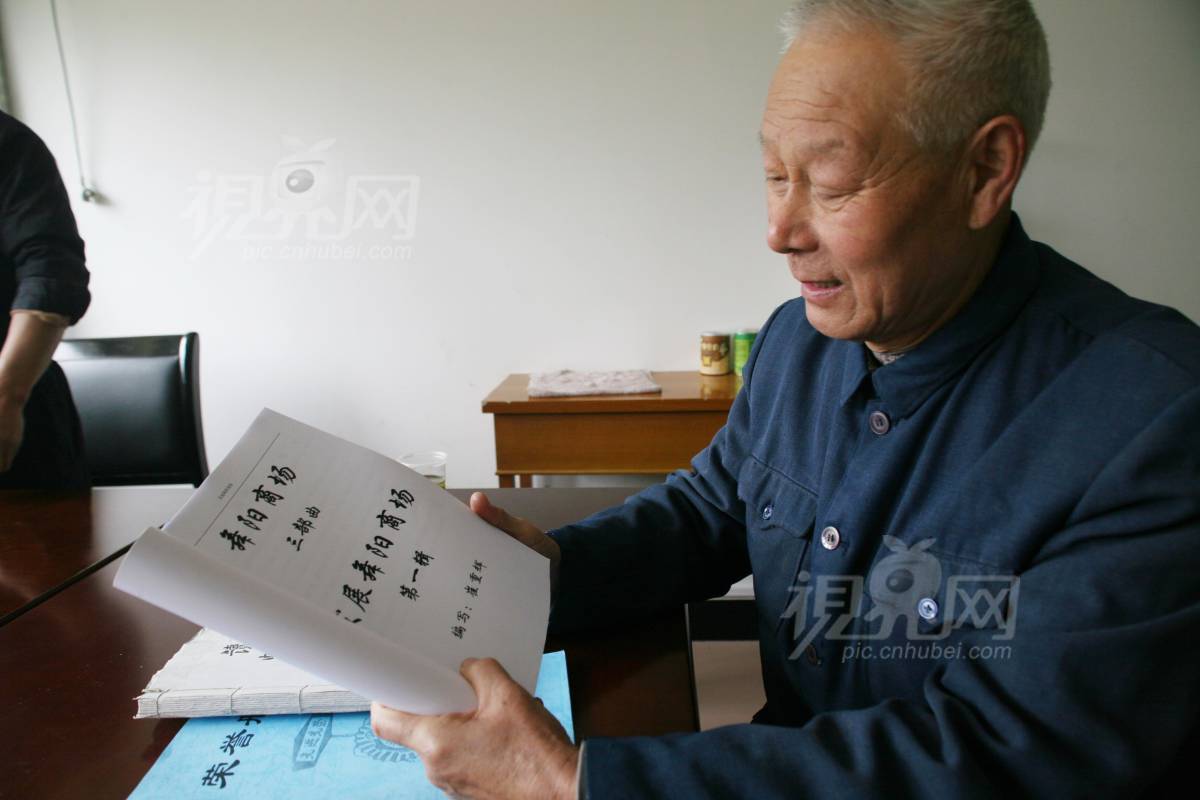 視界网
pic.cnhubei.com
舞阳商场
三部曲
展舞阳商场
第一辑
编写：
荣誉
視界网
pic.cnhubei.com